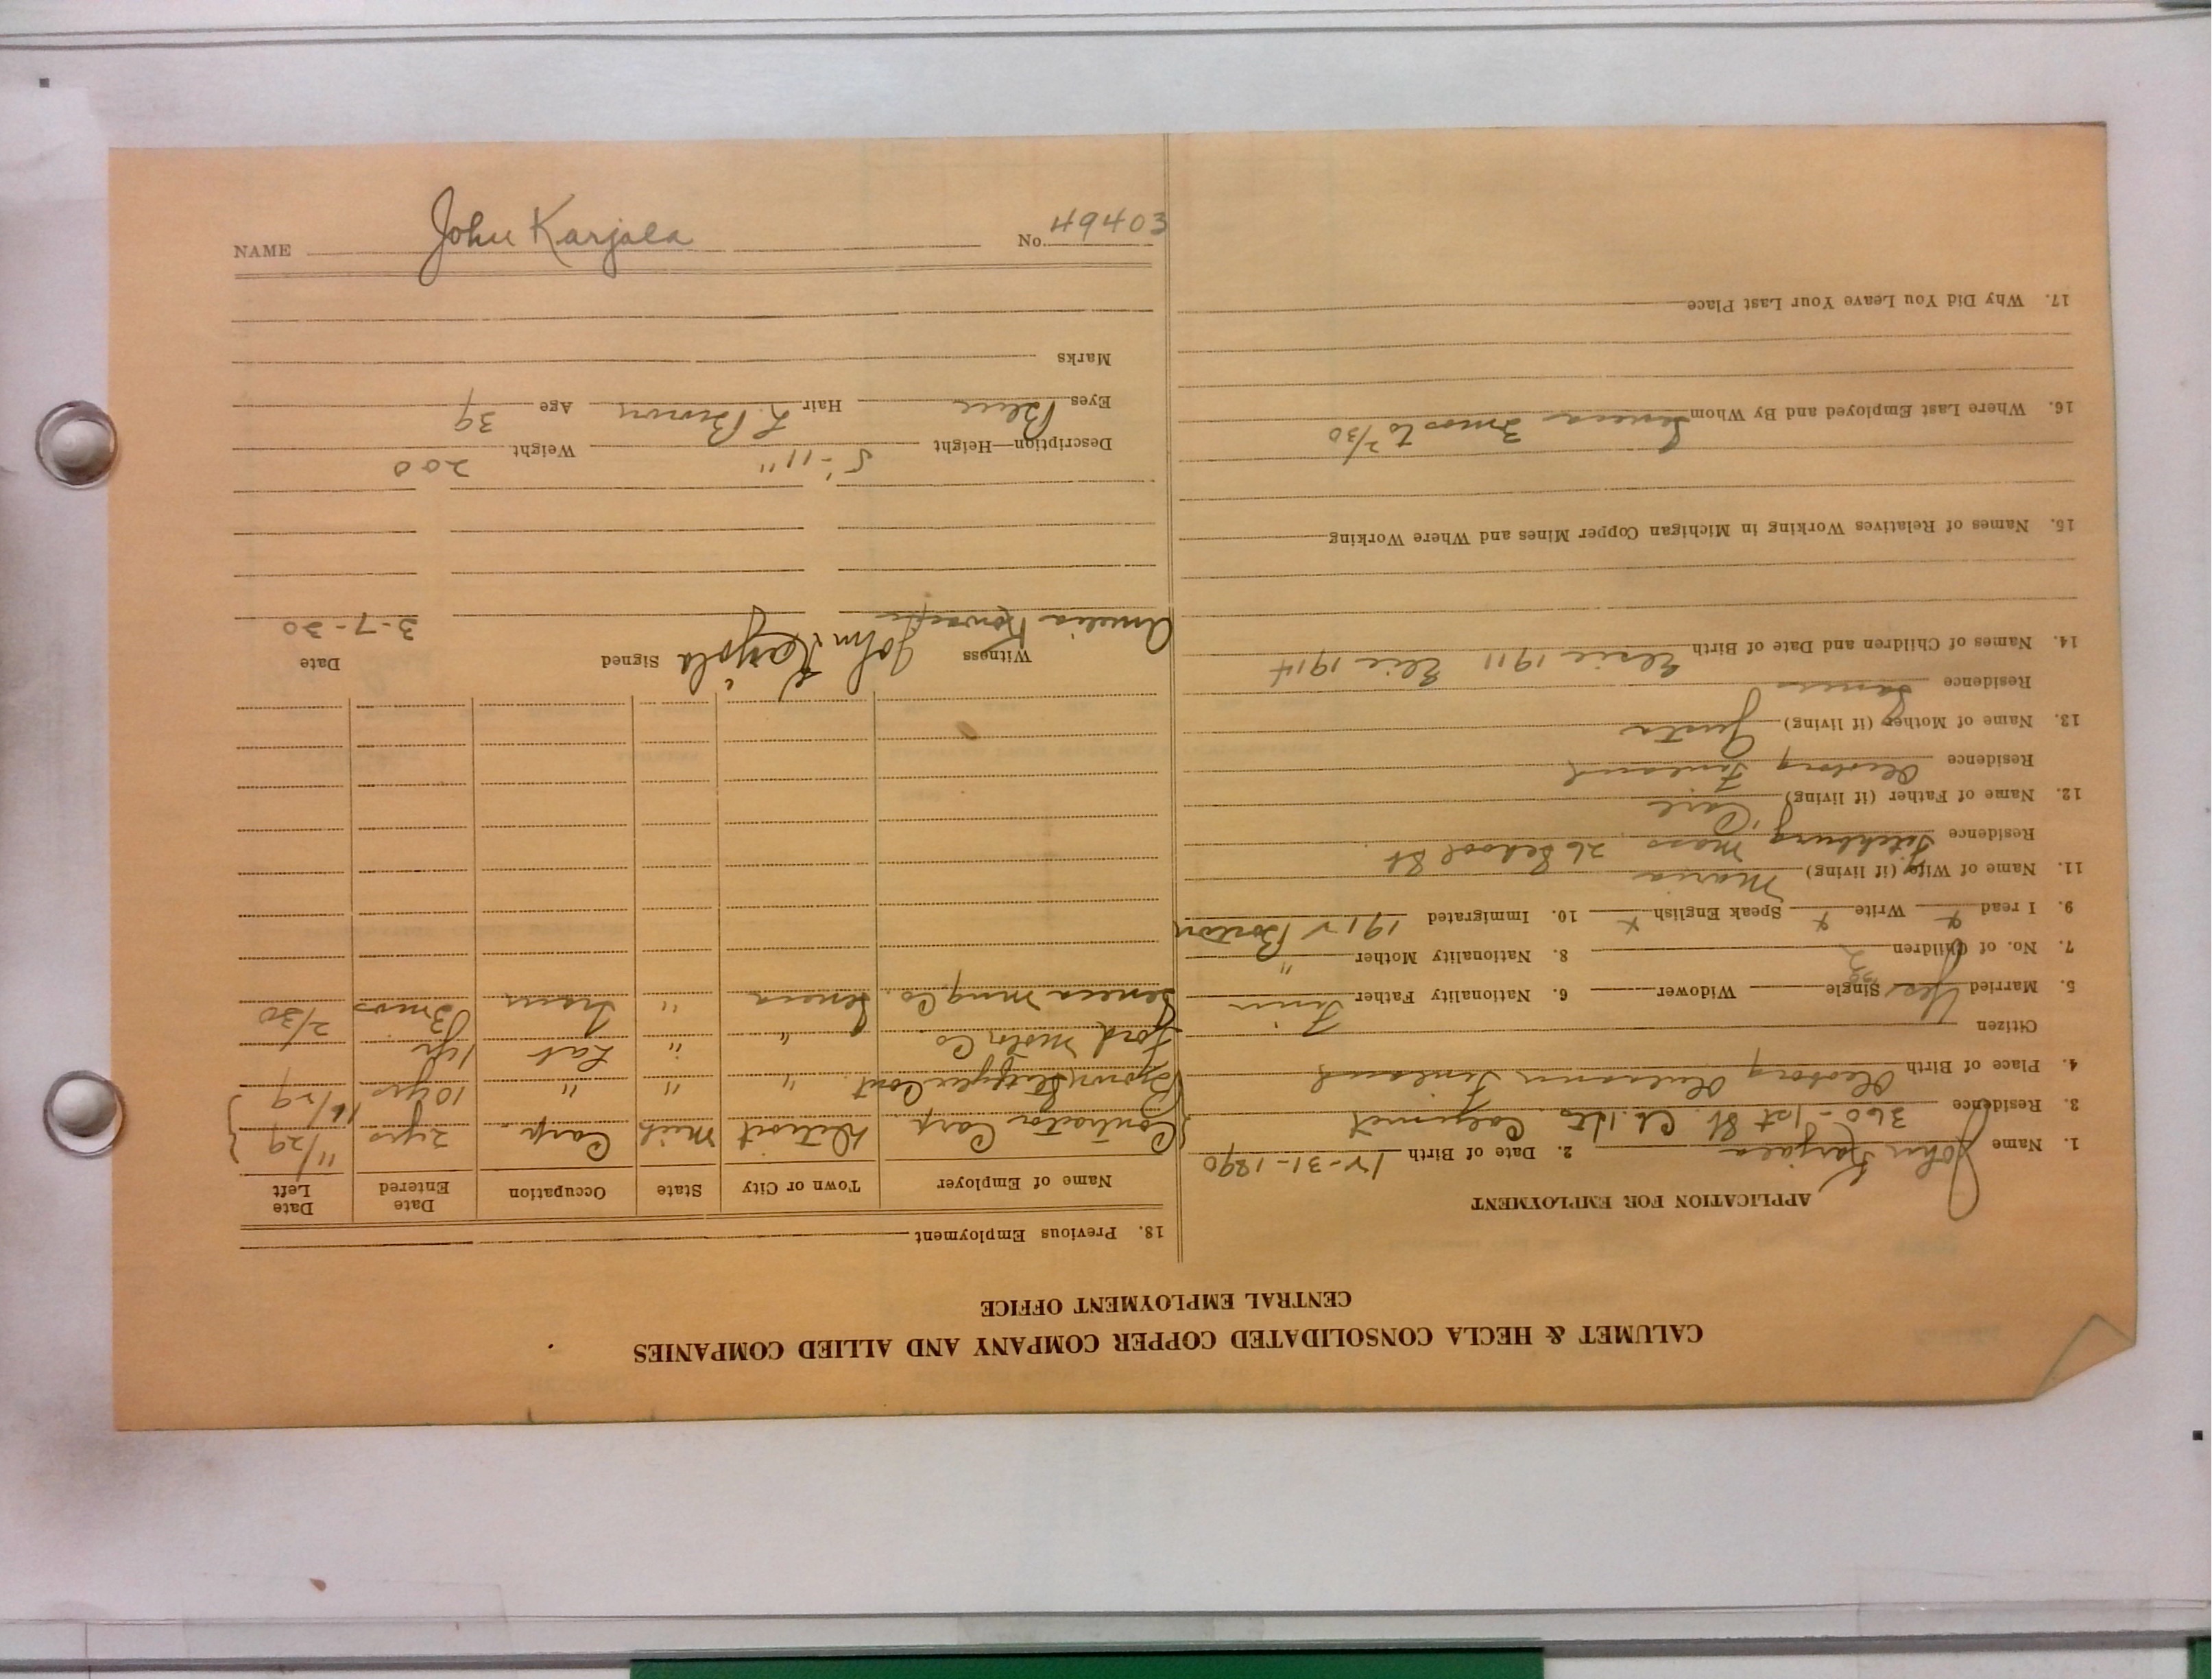 NAME John Karjala No. 49403
CALUMET & HECLA CONSOLIDATED COPPER COMPANY AND ALLIED COMPANIES
CENTRAL EMPLOYMENT OFFICE
APPLICATION FOR EMPLOYMENT
1. Name John Karjala 2. Date of Birth 12-31-1890
3. Residence 360-1st St. Calumet
4. Place of Birth Finland
Citizen
5. Married Yes Single Widower 6. Nationality Father Finn
7. No. of Children 2 8. Nationality Mother "
9. I read x Write x Speak English x 10. Immigrated 1912 Boston
11. Name of Wife (if living) Maria
Residence Fitchburg, Mass. 26 School St.
12. Name of Father (if living) Carl
Residence Finland
13. Name of Mother (if living) Gusta
Residence Same
14. Names of Children and Date of Birth Elsie 1911 Elic 1914
15. Names of Relatives Working in Michigan Copper Mines and Where Working
16. Where Last Employed and By Whom Seneca 3mos to 2/30
17. Why Did You Leave Your Last Place
18. Previous Employment
Name of Employer Town or City State Occupation Date Entered Date Left
Contractor Carp Detroit Mich Carp. 2yrs 11/29
Cont. " " " 10yrs 11/29
Ford Motor Co " " Lab 1yr
Seneca Mng. Co. Seneca " Tram 3mos 2/30
Witness Signed Date
Amelia John Karjala 3-7-30
Description—Height 5'-11" Weight 200
Eyes Blue Hair L. Brown Age 39
Marks